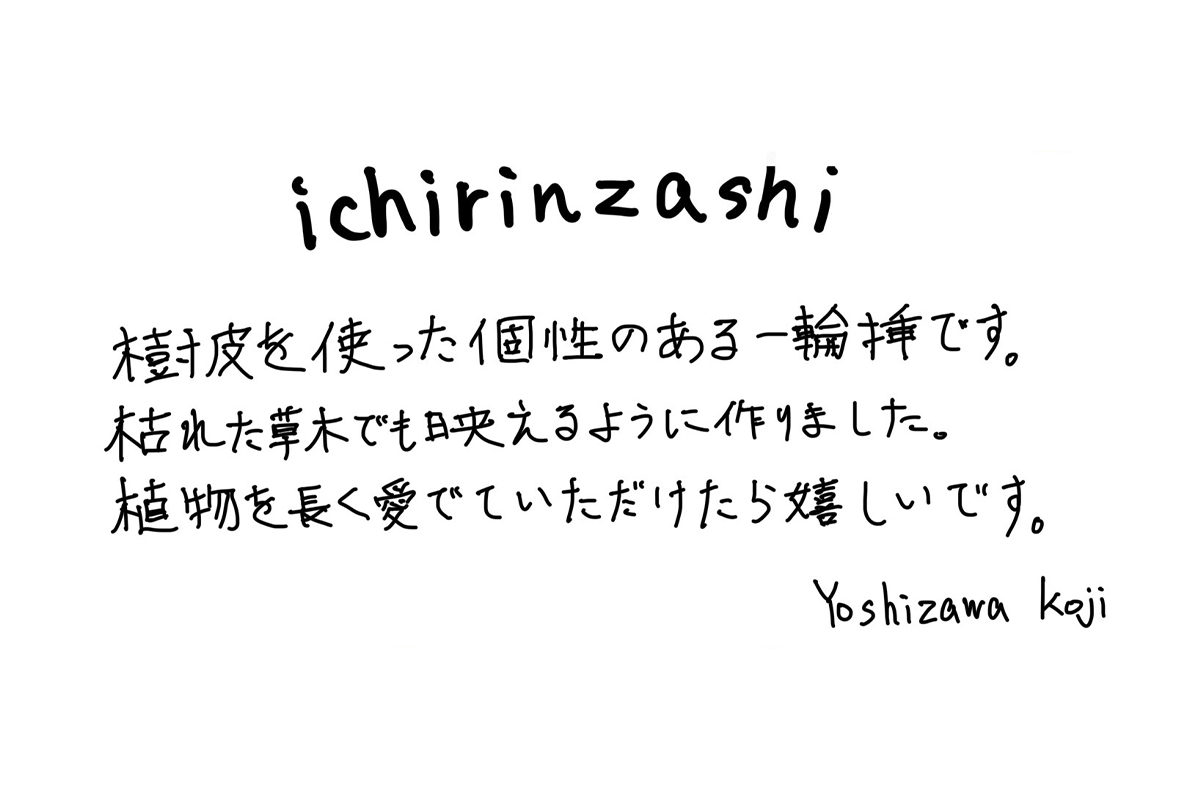 ichirinzashi
樹皮を使った個性のある一輪挿です。
枯れた草木でも映えるように作りました。
植物を長く愛でていただけたら嬉しいです。
Yoshizawa Koji